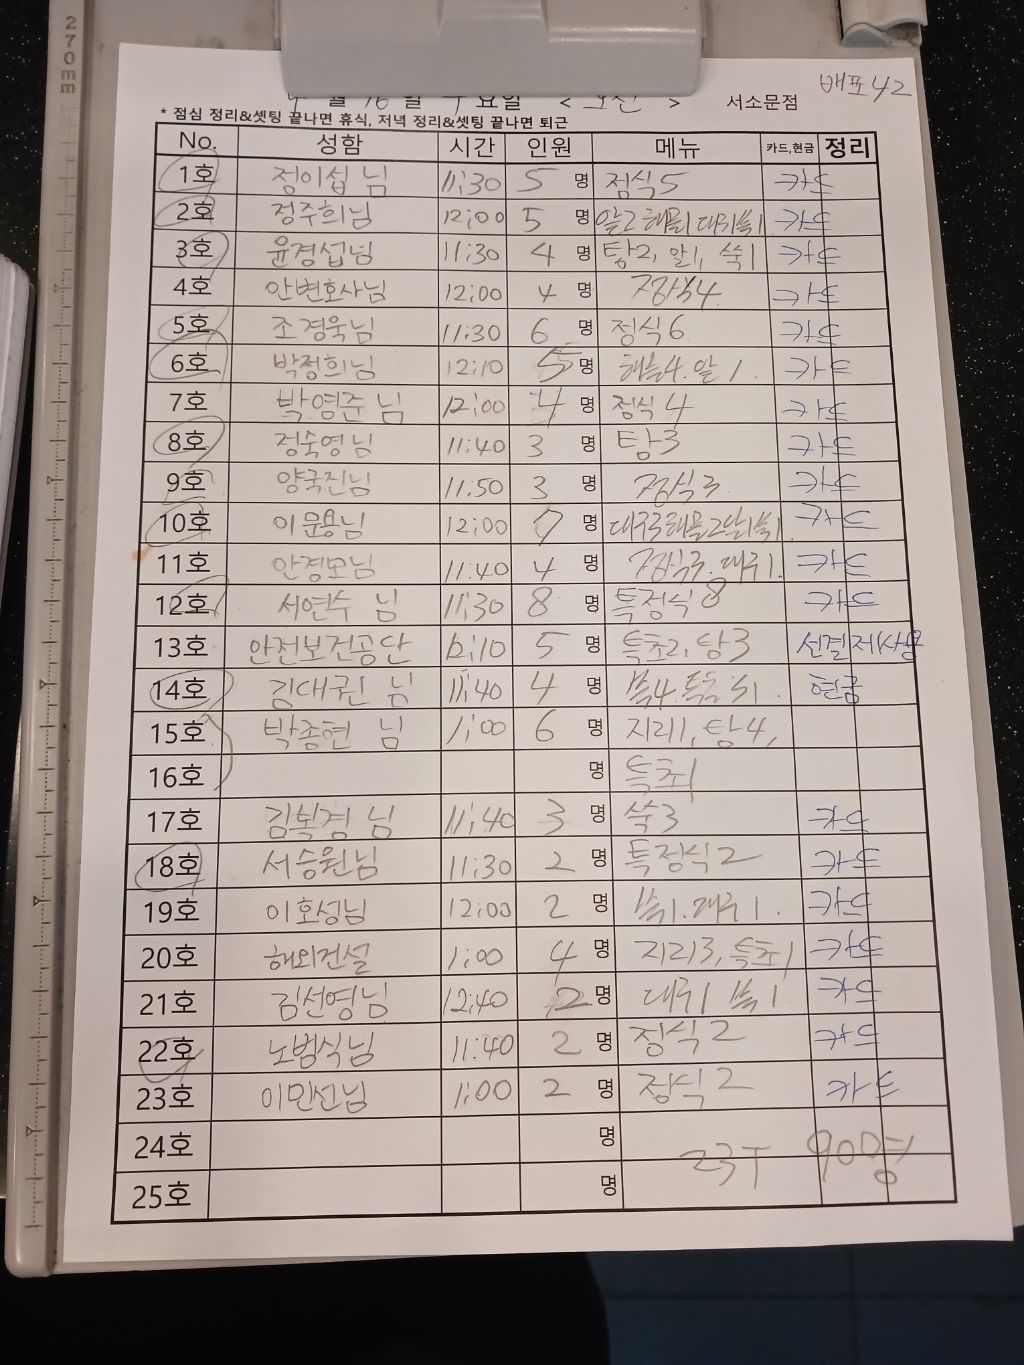 배포 42
월 16일 수요일 < 오전 > 서소문점
* 점심 정리&셋팅 끝나면 휴식, 저녁 정리&셋팅 끝나면 퇴근
No. 성함 시간 인원 메뉴 카드,현금 정리
1호 정이섭 님 11:30 5 명 정식 5 카드
2호 정주희님 12:00 5 명 알2 해물1 대구1 카드
3호 윤경섭님 11:30 4 명 탕2, 알1, 쑥1 카드
4호 안변호사님 12:00 4 명 카드
5호 조경욱님 11:30 6 명 정식 6 카드
6호 박정희님 12:10 5 명 해물4. 알 1. 카드
7호 박영준 님 12:00 4 명 정식 4 카드
8호 정숙영님 11:40 3 명 탕3 카드
9호 양국진님 11:50 3 명 정식3. 카드
10호 이문용님 12:00 7 명 카드
11호 안경모님 11:40 4 명 정식3. 대구1. 카드
12호 서연수 님 11:30 8 명 특정식 8 카드
13호 안전보건공단 12:10 5 명 특초2, 탕3 선결제사용
14호 김대권 님 11:40 4 명 현금
15호 박종현 님 1:00 6 명 지리1, 탕4,
16호 명 특초1
17호 김복경 님 11:40 3 명 쑥3 카드
18호 서승원님 11:30 2 명 특정식 2 카드
19호 이호성님 12:00 2 명 대구 1. 카드
20호 해외건설 1:00 4 명 지리3, 특초1 카드
21호 김선영님 12:40 2 명 대구1 카드
22호 노범식님 11:40 2 명 정식 2 카드
23호 이민선님 1:00 2 명 정식 2 카드
24호 명
25호 명
90명
270mm